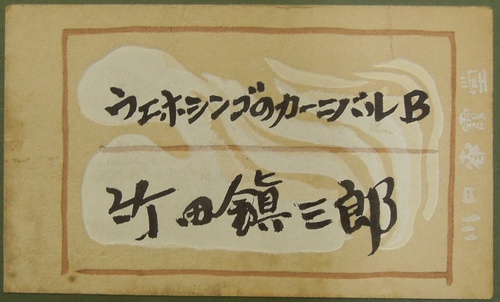 ウエホシンゴのカーニバルB
竹田鎮三郎